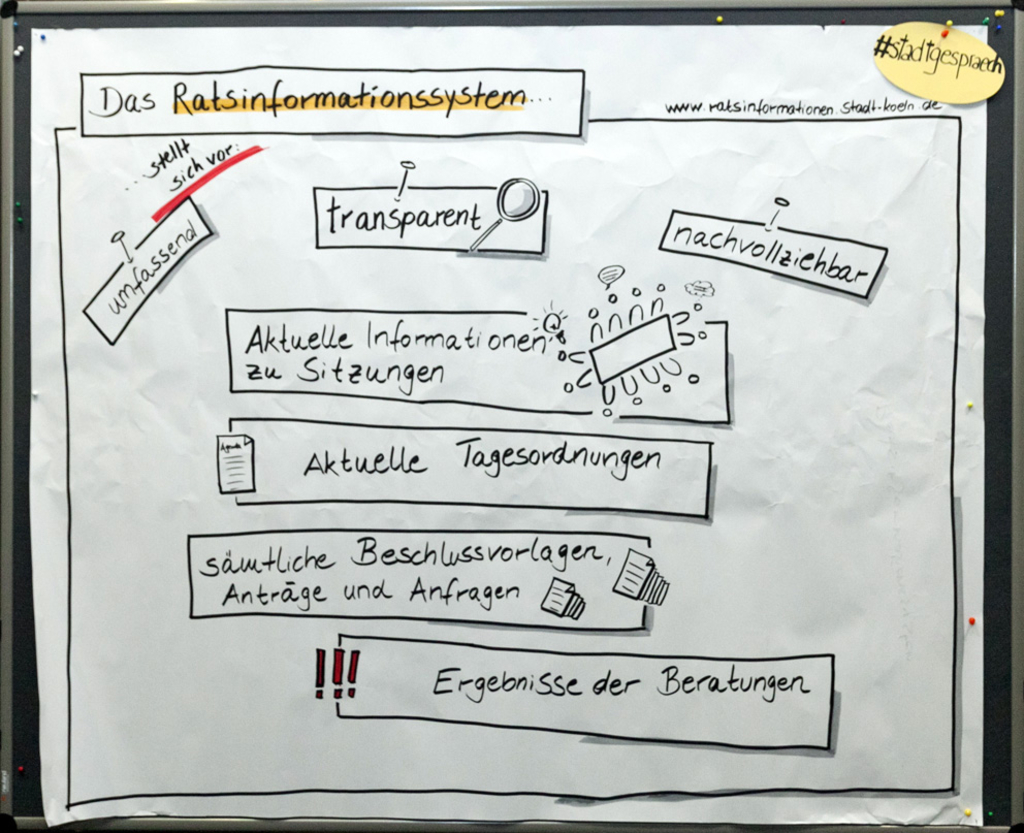 #stadtgespraech
Das Ratsinformationssystem...
www.ratsinformationen.stadt-koeln.de
...stellt
sich vor:
umfassend
transparent
nachvollziehbar
Aktuelle Informationen
zu Sitzungen
Agenda
Aktuelle Tagesordnungen
sämtliche Beschlussvorlagen,
Anträge und Anfragen
!!!
Ergebnisse der Beratungen